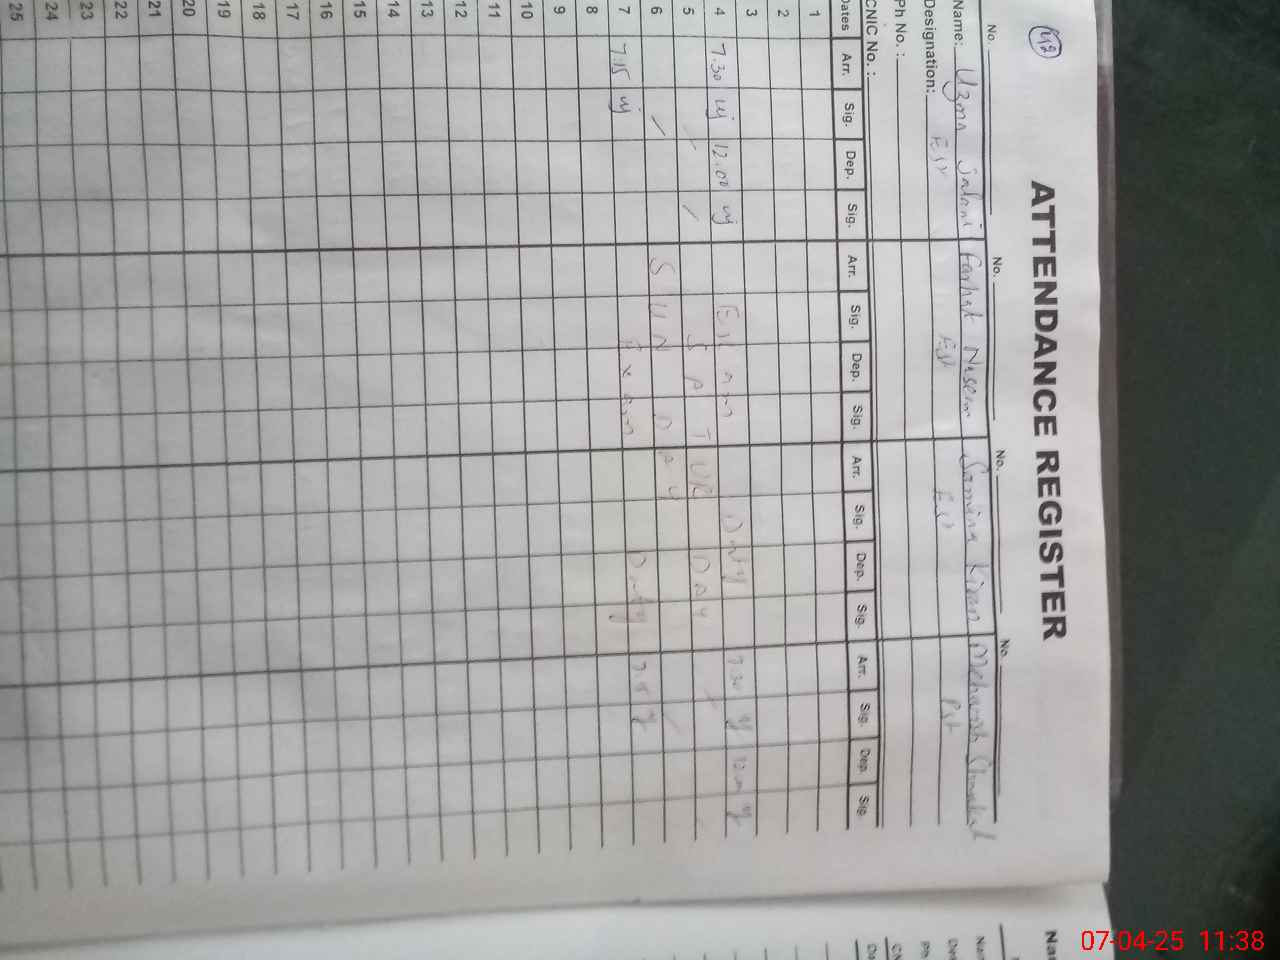 42
ATTENDANCE REGISTER
No. No. No. No.
Name: Uzma Farhat Naseem Samina Kiran
Designation: EST EST EST Pst
Ph No. :
CNIC No. :
Dates Arr. Sig. Dep. Sig. Arr. Sig. Dep. Sig. Arr. Sig. Dep. Sig. Arr. Sig. Dep. Sig.
1
2
3
4 7.30 12.00 Exam Duty 7.30
5 SATUR DAY
6 SUN DAY
7 7.15 Exam Duty
8
9
10
11
12
13
14
15
16
17
18
19
20
21
22
23
24
25
07-04-25 11:38